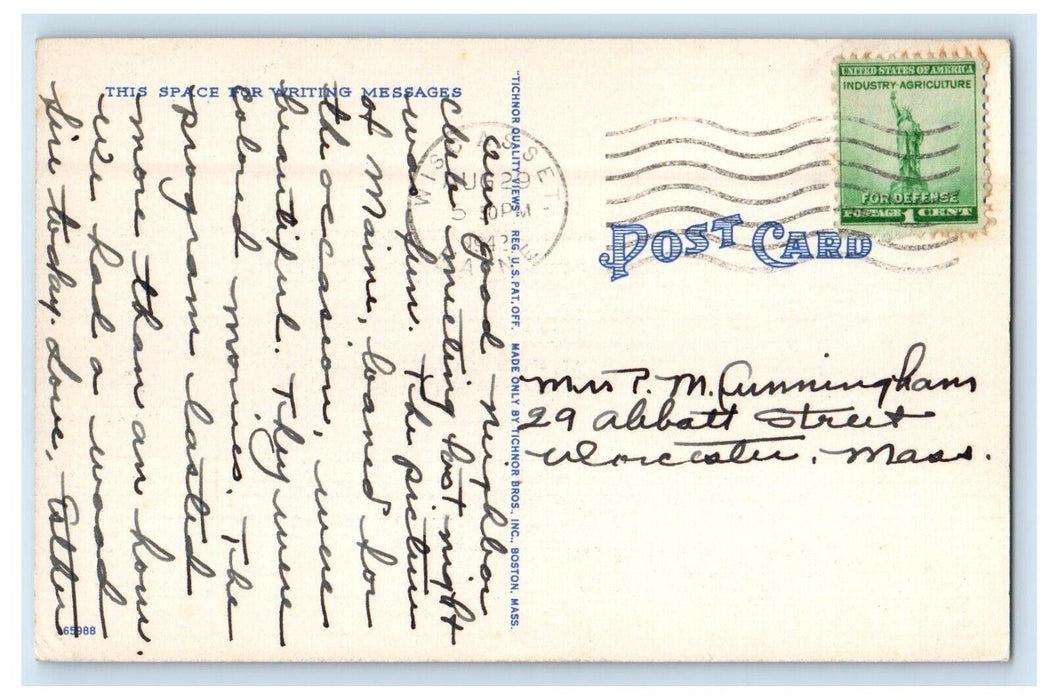 THIS SPACE FOR WRITING MESSAGES
Our good neighbor
club meeting last night
was fun. The pictures
of Maine, loaned for
the occasion, were
beautiful. They were
colored movies. The
program lasted
more than an hour.
We had a wood
fire today. Love, Esther
65988
"TICHNOR QUALITY VIEWS" REG. U. S. PAT. OFF. MADE ONLY BY TICHNOR BROS., INC., BOSTON, MASS.
WISCASSET
AUG 29
PM
MAINE
UNITED STATES OF AMERICA
INDUSTRY·AGRICULTURE
FOR DEFENSE
POSTAGE 1 CENT
POST CARD
Mrs P. M. Cunningham
29 Abbott Street
Worcester, Mass.